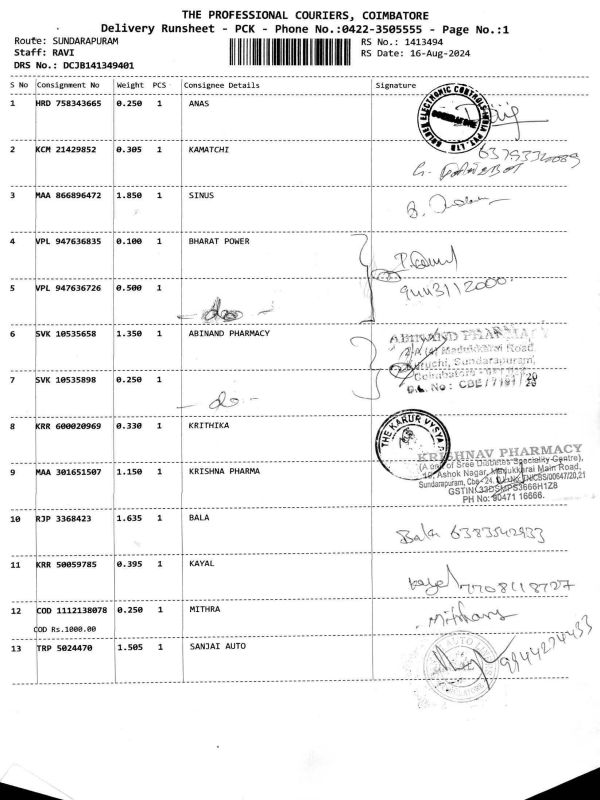 THE PROFESSIONAL COURIERS, COIMBATORE
Delivery Runsheet - PCK - Phone No.:0422-3505555 - Page No.:1
Route: SUNDARAPURAM RS No.: 1413494
Staff: RAVI RS Date: 16-Aug-2024
DRS No.: DCJB141349401
S No Consignment No Weight PCS Consignee Details Signature
1 HRD 758343665 0.250 1 ANAS
2 KCM 21429852 0.305 1 KAMATCHI
3 MAA 866896472 1.850 1 SINUS
4 VPL 947636835 0.100 1 BHARAT POWER
5 VPL 947636726 0.500 1
- do -
9443112000
6 SVK 10535658 1.350 1 ABINAND PHARMACY
ABINAND PHARMACY
Madukkarai Road,
Sundarapuram,
7 SVK 10535898 0.250 1
- do -
8 KRR 600020969 0.330 1 KRITHIKA
THE KARUR VYSYA
9 MAA 301651507 1.150 1 KRISHNA PHARMA
KRISHNAV PHARMACY
(A unit of Sree Diabetes Speciality Centre),
Ashok Nagar, Madukkarai Main Road,
Sundarapuram, Cbe - 24.
PH No: 90471 16666.
10 RJP 3368423 1.635 1 BALA
Bala 6383542933
11 KRR 50059785 0.395 1 KAYAL
Kayal 7708118727
12 COD 1112138078 0.250 1 MITHRA
COD Rs.1000.00
13 TRP 5024470 1.505 1 SANJAI AUTO
9944274433